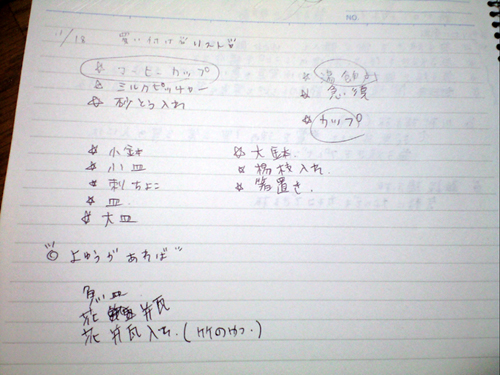 NO.
11/18 買い付けリスト
☆ コーヒーカップ
☆ ミルクピッチャー
☆ 砂とう入れ
☆ 湯飲み
☆ 急須
☆ カップ
☆ 小鉢
☆ 小皿
☆ 刺ちょこ
☆ 皿
☆ 大皿
☆ 大鉢
☆ 楊枝入れ
☆ 箸置き
◎ よゆうがあれば
魚皿
花 井瓦
花 井瓦 入れ.(竹のやつ.)